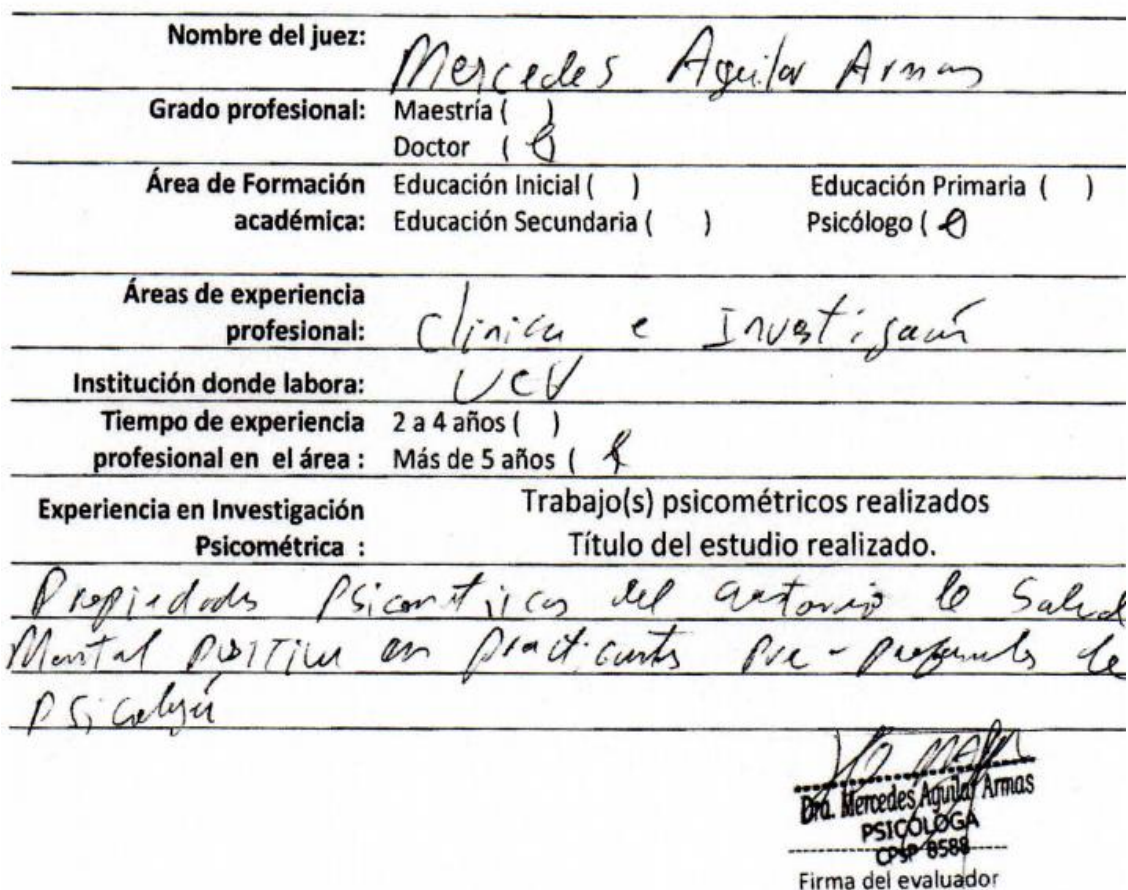 Nombre del juez: Mercedes Aguilar Armas
Grado profesional: Maestría ( )
Doctor ( )
Área de Formación Educación Inicial ( ) Educación Primaria ( )
académica: Educación Secundaria ( ) Psicólogo ( )
Áreas de experiencia
profesional: Clínica e Investigación
Institución donde labora: UCV
Tiempo de experiencia 2 a 4 años ( )
profesional en el área : Más de 5 años (
Experiencia en Investigación Trabajo(s) psicométricos realizados
Psicométrica : Título del estudio realizado.
Propiedades Psicométricas del cuestionario de Salud
Mental positiva en practicantes pre-profesionales de
psicología
Dra. Mercedes Aguilar Armas
PSICÓLOGA
CPsP 8588
Firma del evaluador